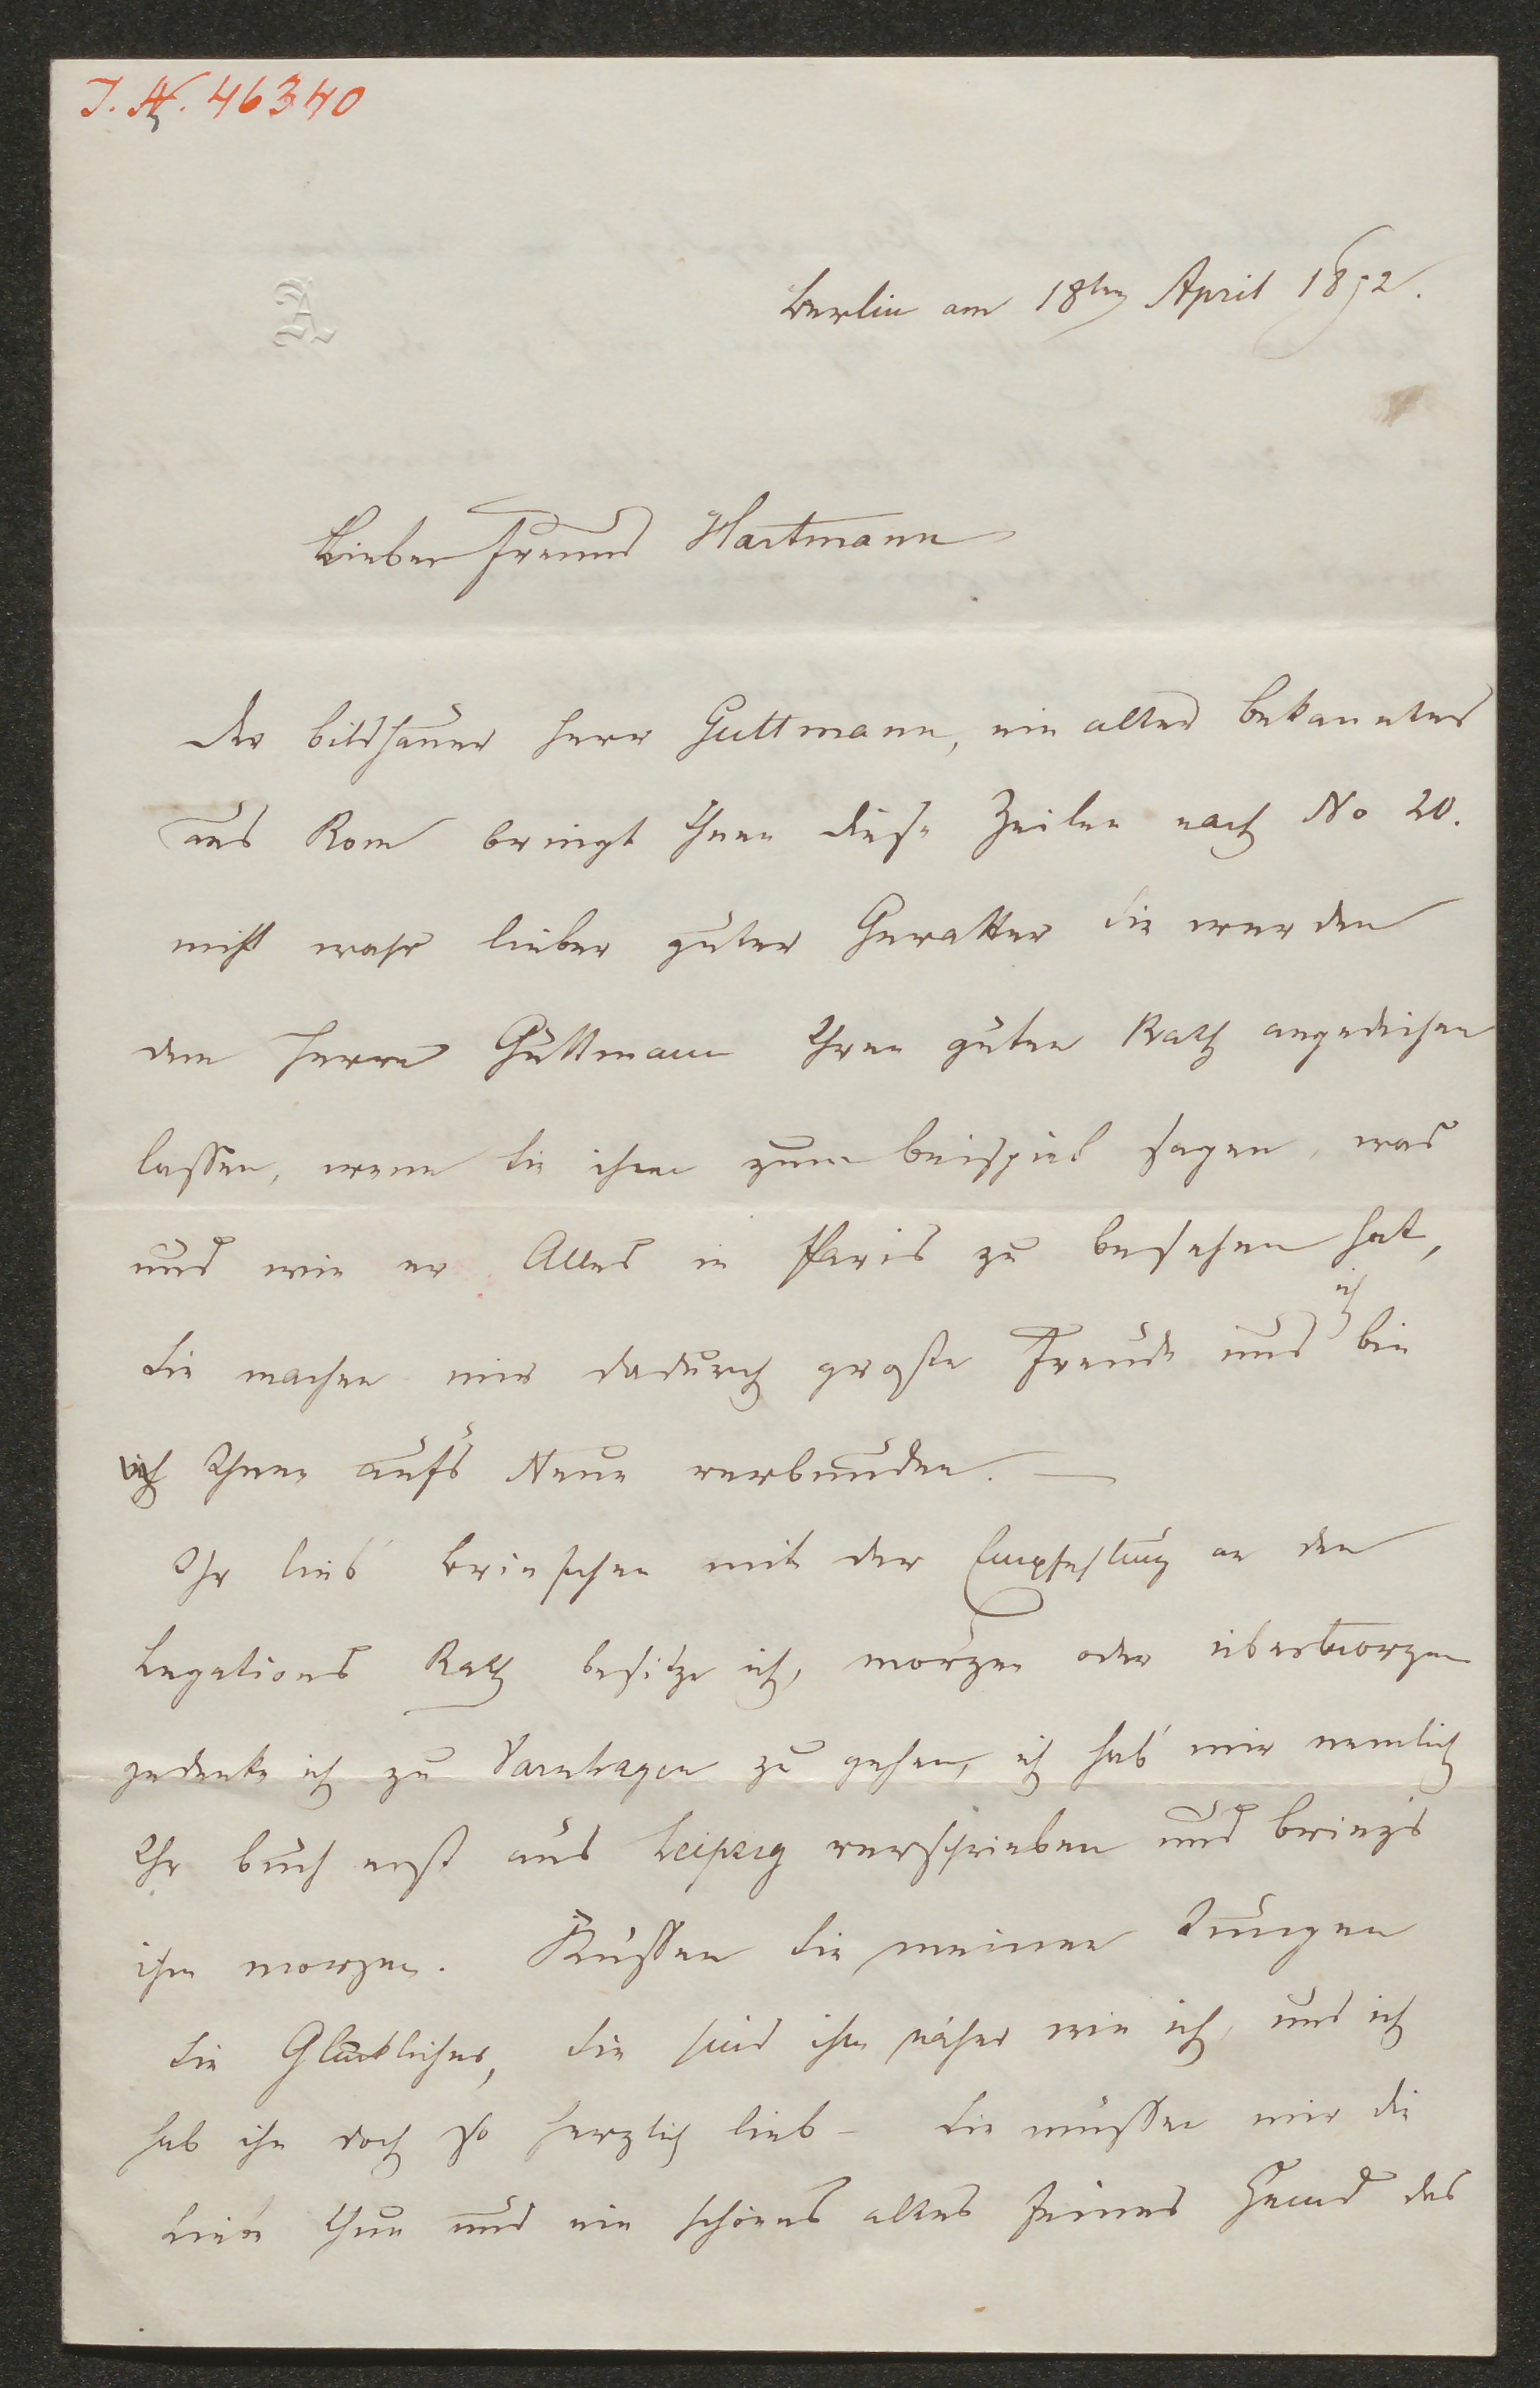 J. N. 46340
A
Berlin am 18ten April 1852.
Lieber Freund Hartmann
Der Bildhauer Herr Guttmann, ein alter Bekannter
aus Rom bringt Ihnen diese Zeilen nach No 20.
nicht wahr lieber guter Gevatter Sie werden
dem Herrn Guttmann Ihren guten Rath angedeihen
lassen, wenn Sie ihm zum Beispiel sagen, was
und wie er Alles in Paris zu besehen hat,
Sie machen mir dadurch große Freude und ich bin
Ihnen aufs Neue verbunden. —
Ihr lieb Briefchen mit der Empfehlung an den
Legations Rath besitze ich, morgen oder übermorgen
gedenke ich zu Varnhagen zu gehen, ich hab mir nemlich
Ihr Buch erst aus Leipzig verschrieben und bring's
ihm morgen. Küssen Sie meinen Jungen
Sie Glücklicher, Sie sind ihm näher wie ich, und ich
hab ihn doch so herzlich lieb – Sie müssen mir die
Liebe thun und ein schönes altes feines Hemd des